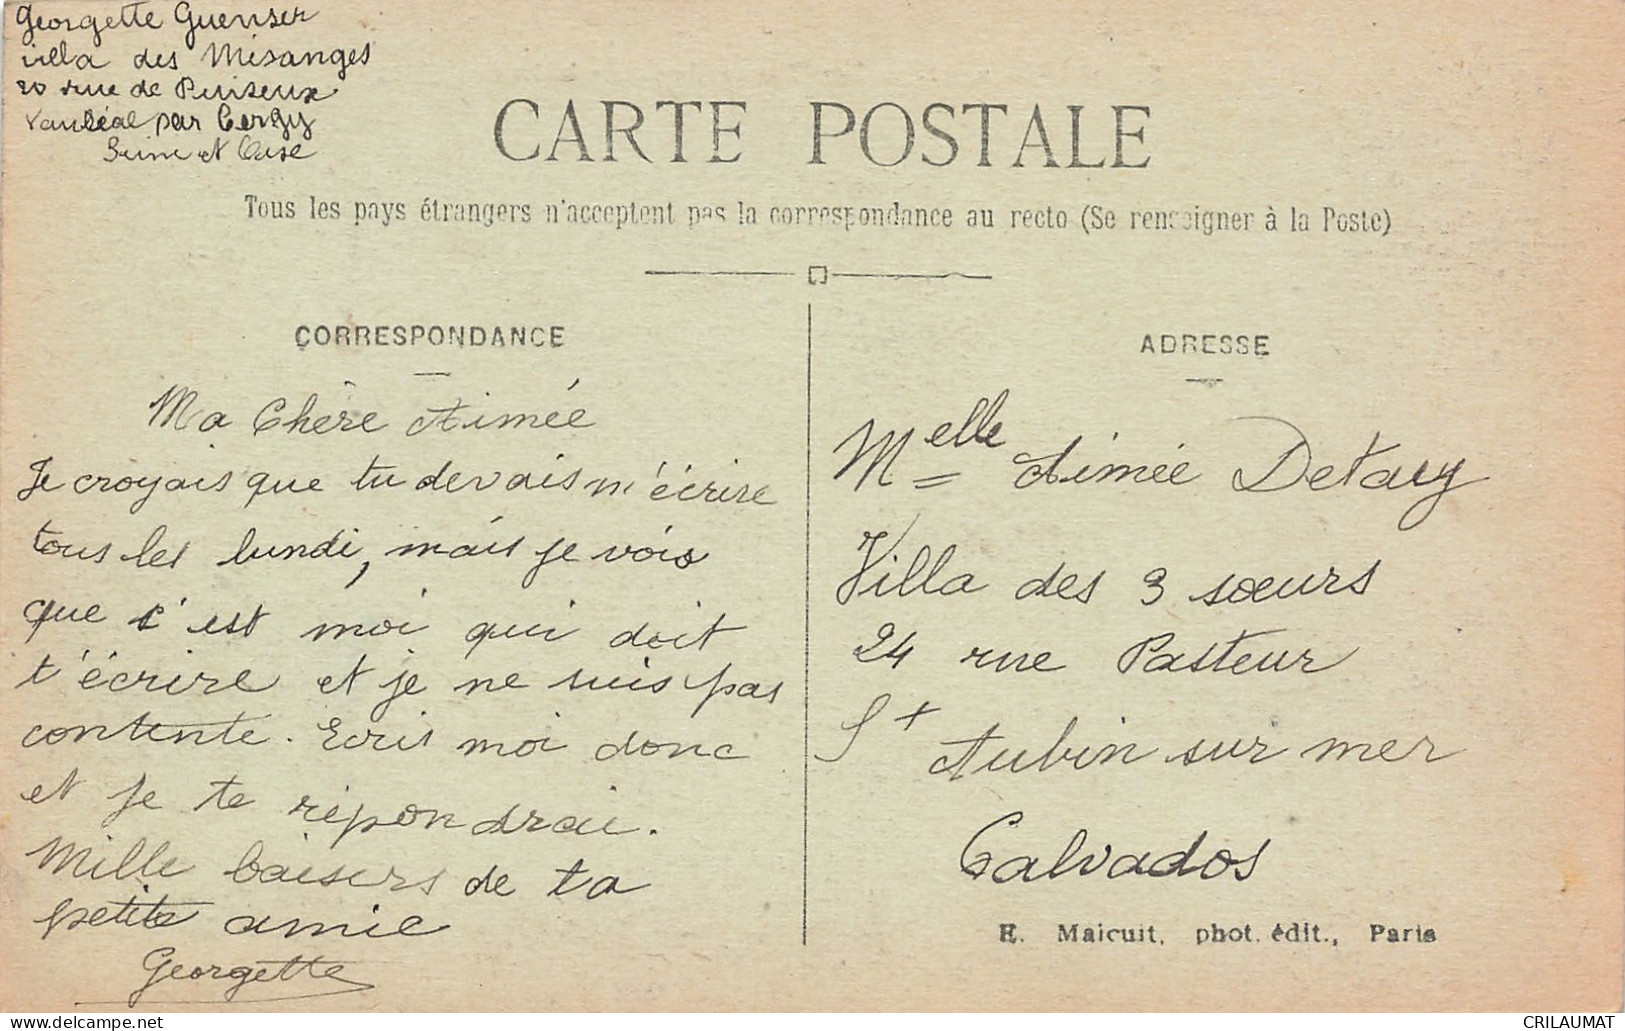 Georgette Guenser
villa des Mésanges
20 rue de Puiseux
Vauréal par Cergy
Seine et Oise
CARTE POSTALE
Tous les pays étrangers n'acceptent pas la correspondance au recto (Se renseigner à la Poste)
CORRESPONDANCE
Ma Chère Aimée
Je croyais que tu devais m'écrire
tous les lundi, mais je vois
que c'est moi qui doit
t'écrire et je ne suis pas
contente. Ecris moi donc
et je te répondrai.
Mille baisers de ta
petite amie
Georgette
ADRESSE
Melle Aimée Detaey
Villa des 3 sœurs
24 rue Pasteur
St Aubin sur mer
Calvados
E. Maicuit, phot. édit., Paris
www.delcampe.net
CRILAUMAT